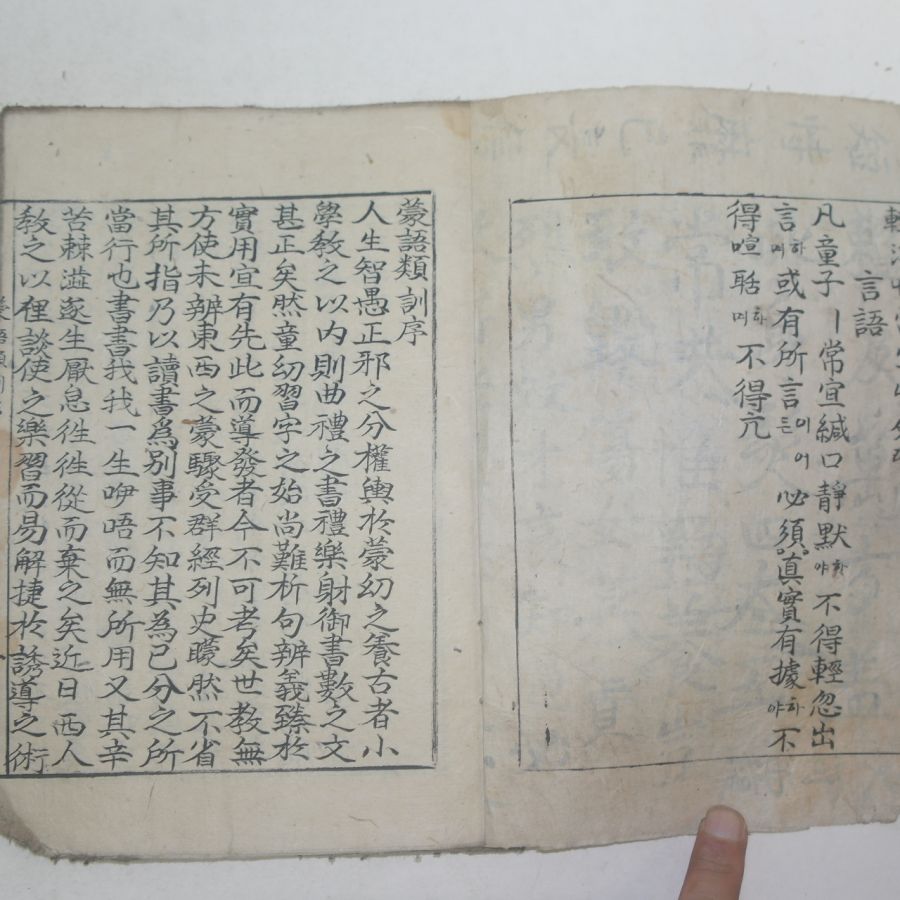 言語
凡童子丨常宜緘口靜默하야不得輕忽出
言하며或有所言이어든必須眞實有據하야不
得喧聒하며不得亢
蒙語類訓序
人生智愚正邪之分權輿於蒙幼之養古者小
學敎之以內則曲禮之書禮樂射御書數之文
甚正矣然童幼習字之始尚難析句辨義臻於
實用宜有先此而導發者今不可考矣世教無
方使未辨東西之蒙驟受群經列史矇然不省
其所指乃以讀書爲別事不知其為已分之所
當行也書書我我一生咿唔而無所用又其辛
苦棘澁遂生厭息徃徃從而棄之矣近日西人
敎之以俚談使之樂習而易解捷於誘導之術